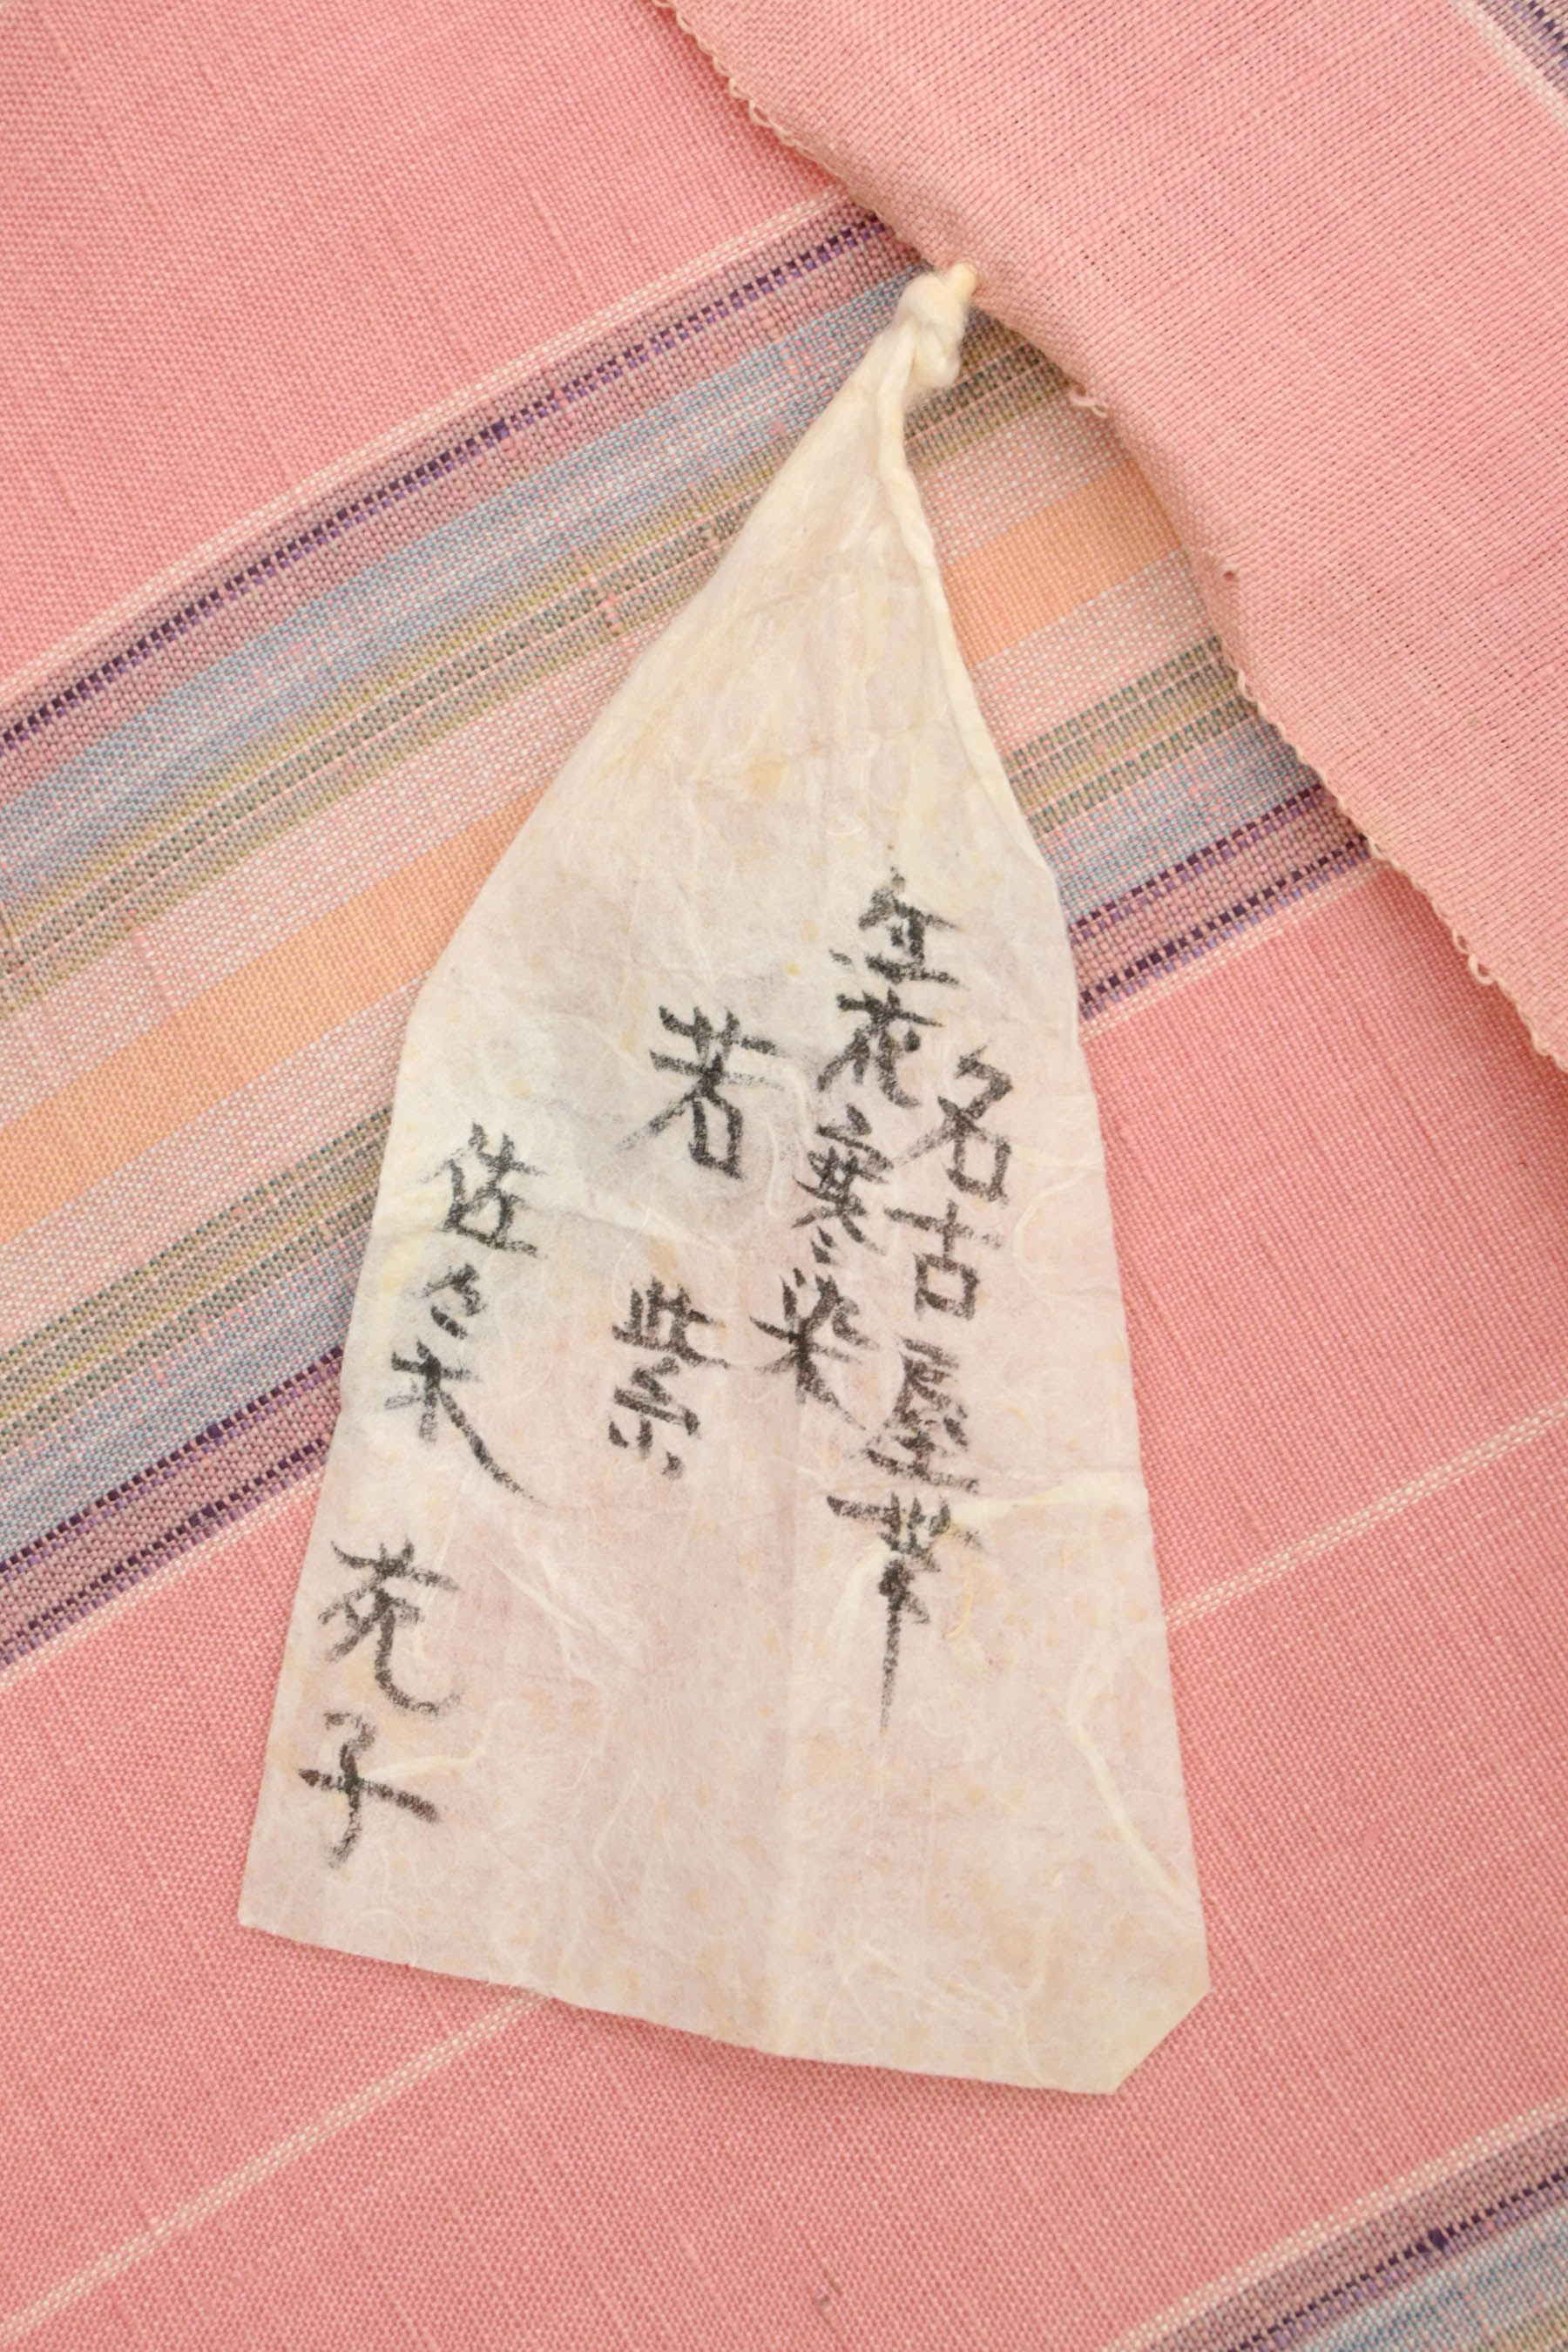 名古屋帯
紅花寒染
若紫
佐々木苑子